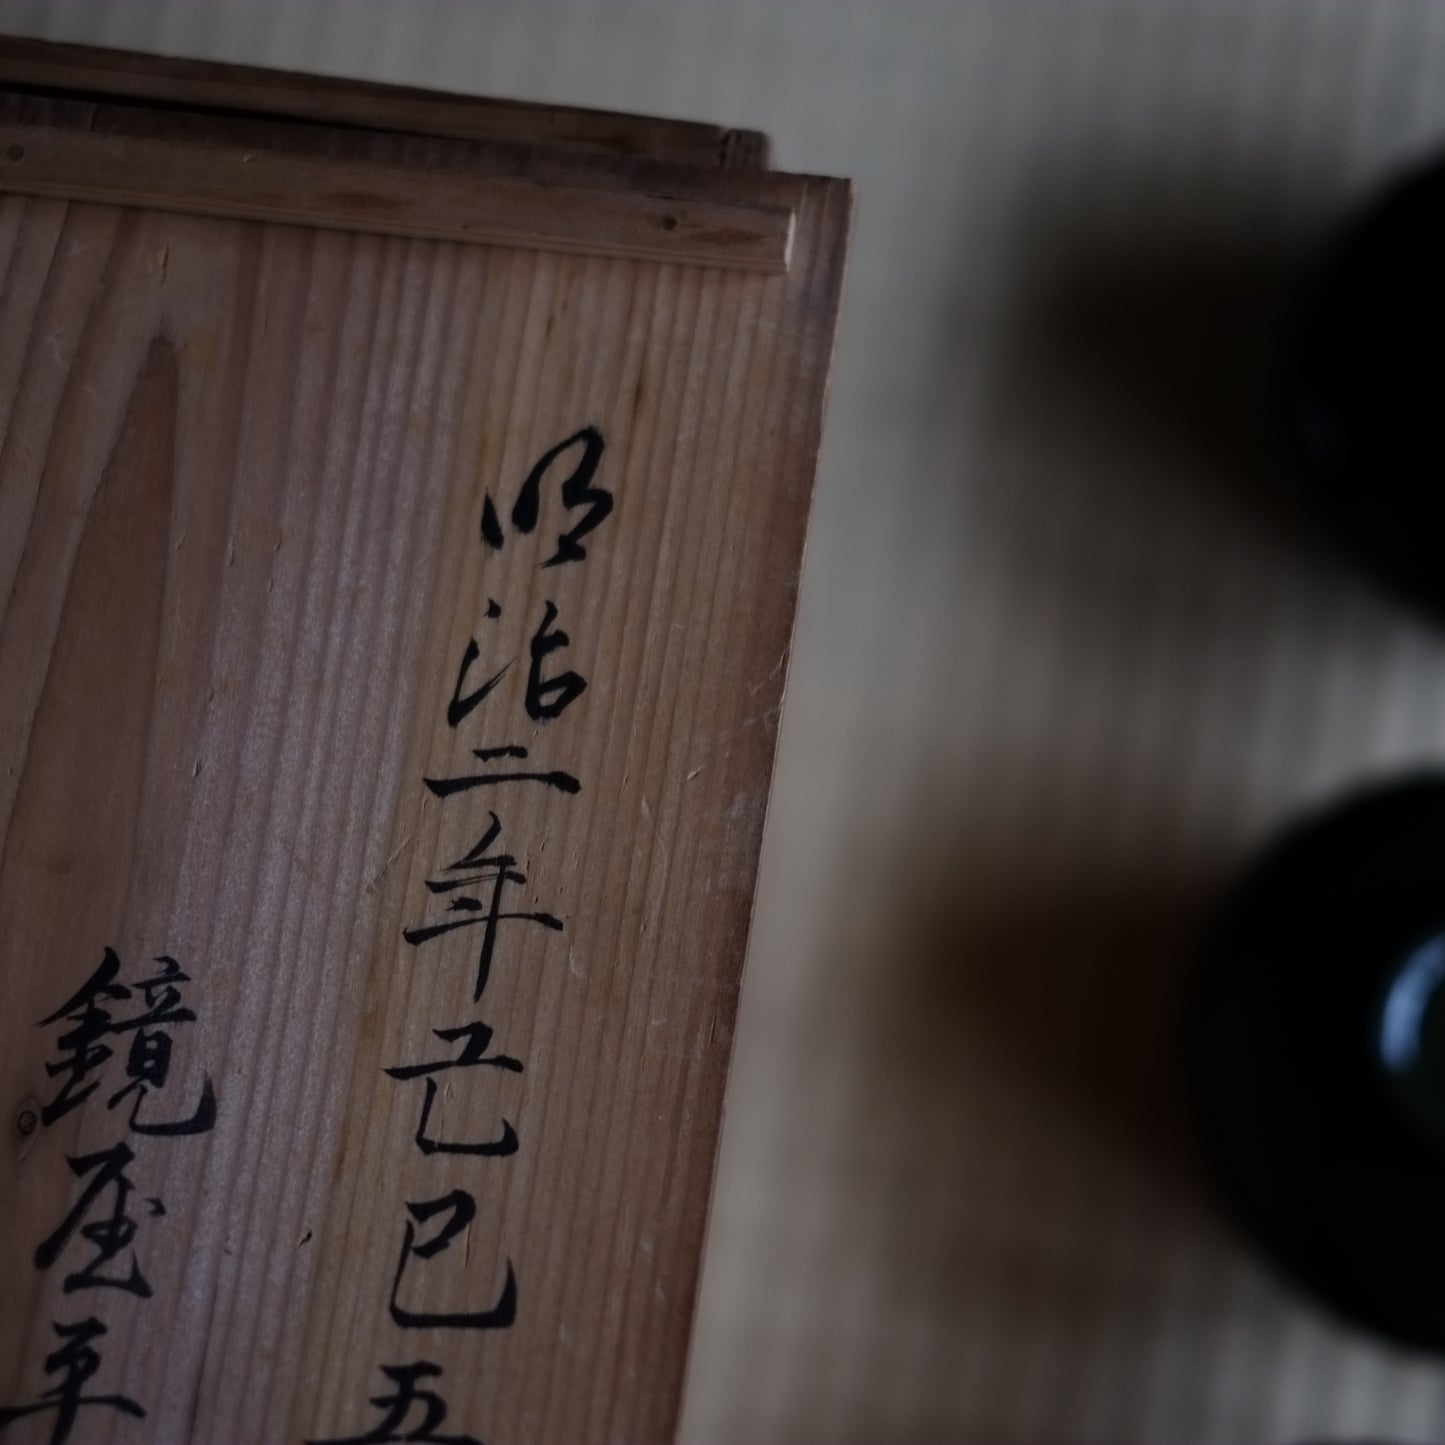 明治二年己巳五
鏡屋平